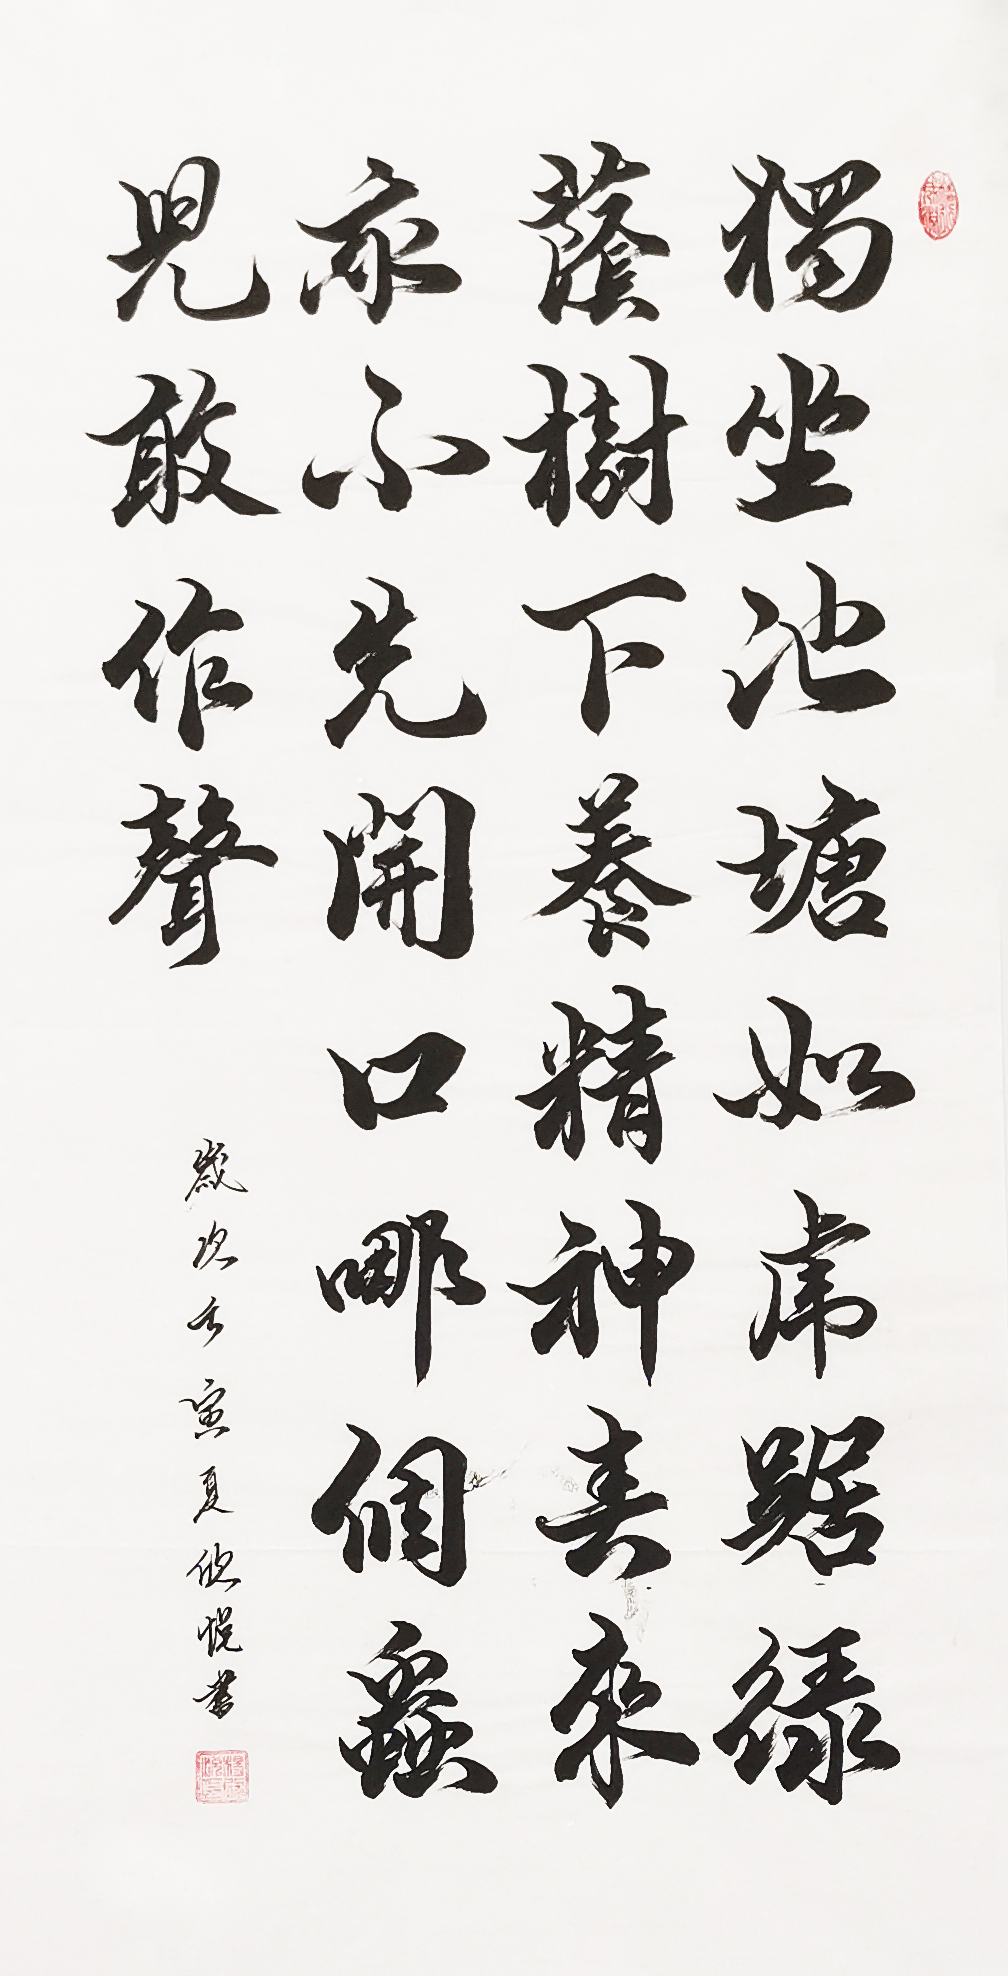 獨坐池塘如虎踞綠
蔭樹下養精神春來
我不先開口哪個蟲
兒敢作聲
歲次壬寅夏欣悅書